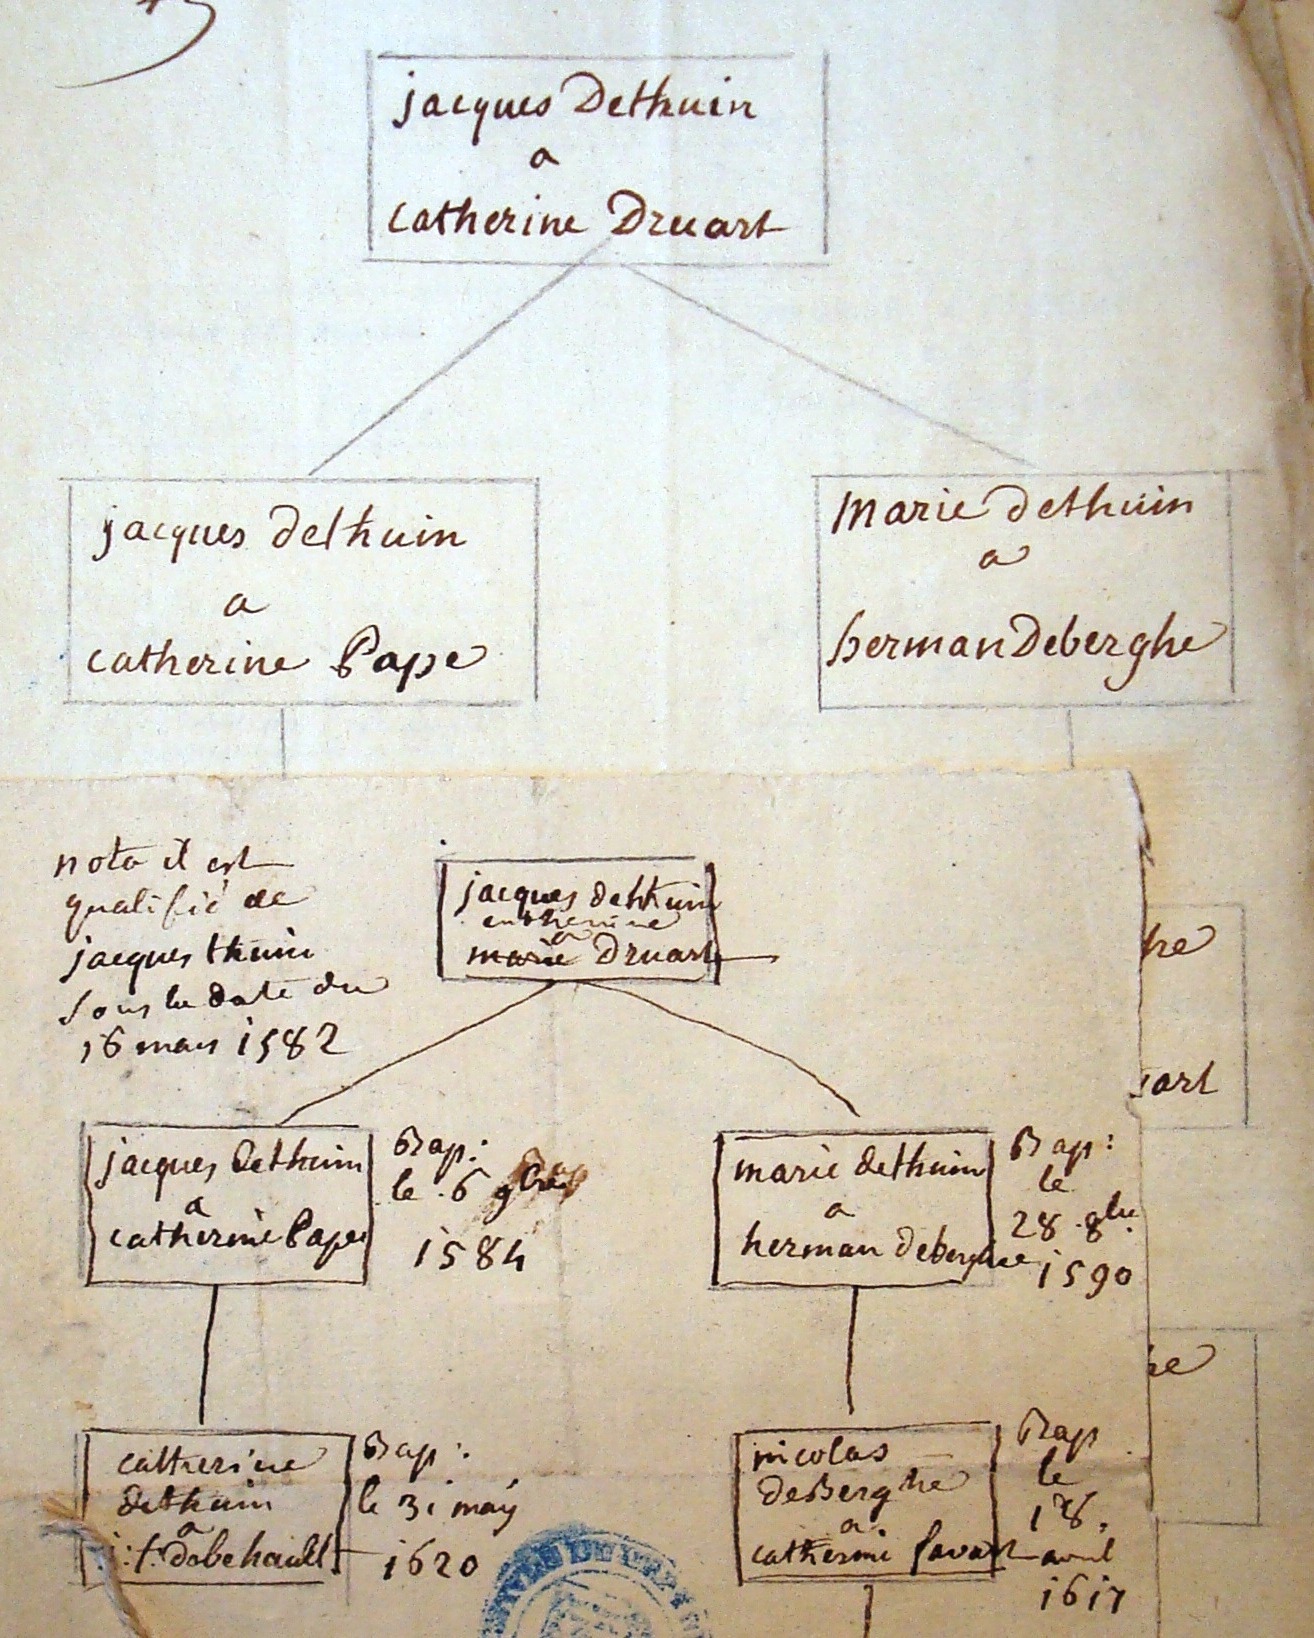 jacques Dethuin
a
catherine Druart
jacques dethuin
a
catherine Pape
Marie dethuin
a
herman Deberghe
nota il est
qualifié de
jacques thuin
sous la date du
16 mars 1582
jacques dethuin
catherine
a
marie Druart
jacques dethuin
a
catherine Pape
Bap:
le 6 9bre
1584
marie dethuin
a
herman deberghe
Bap:
le
28 8bre
1590
catherine
dethuin
a
j: f: dobehault
Bap:
le 31 maÿ
1620
nicolas
deBerghe
a
catherine favart
Bap
le
18
avril
1617
he
art
he